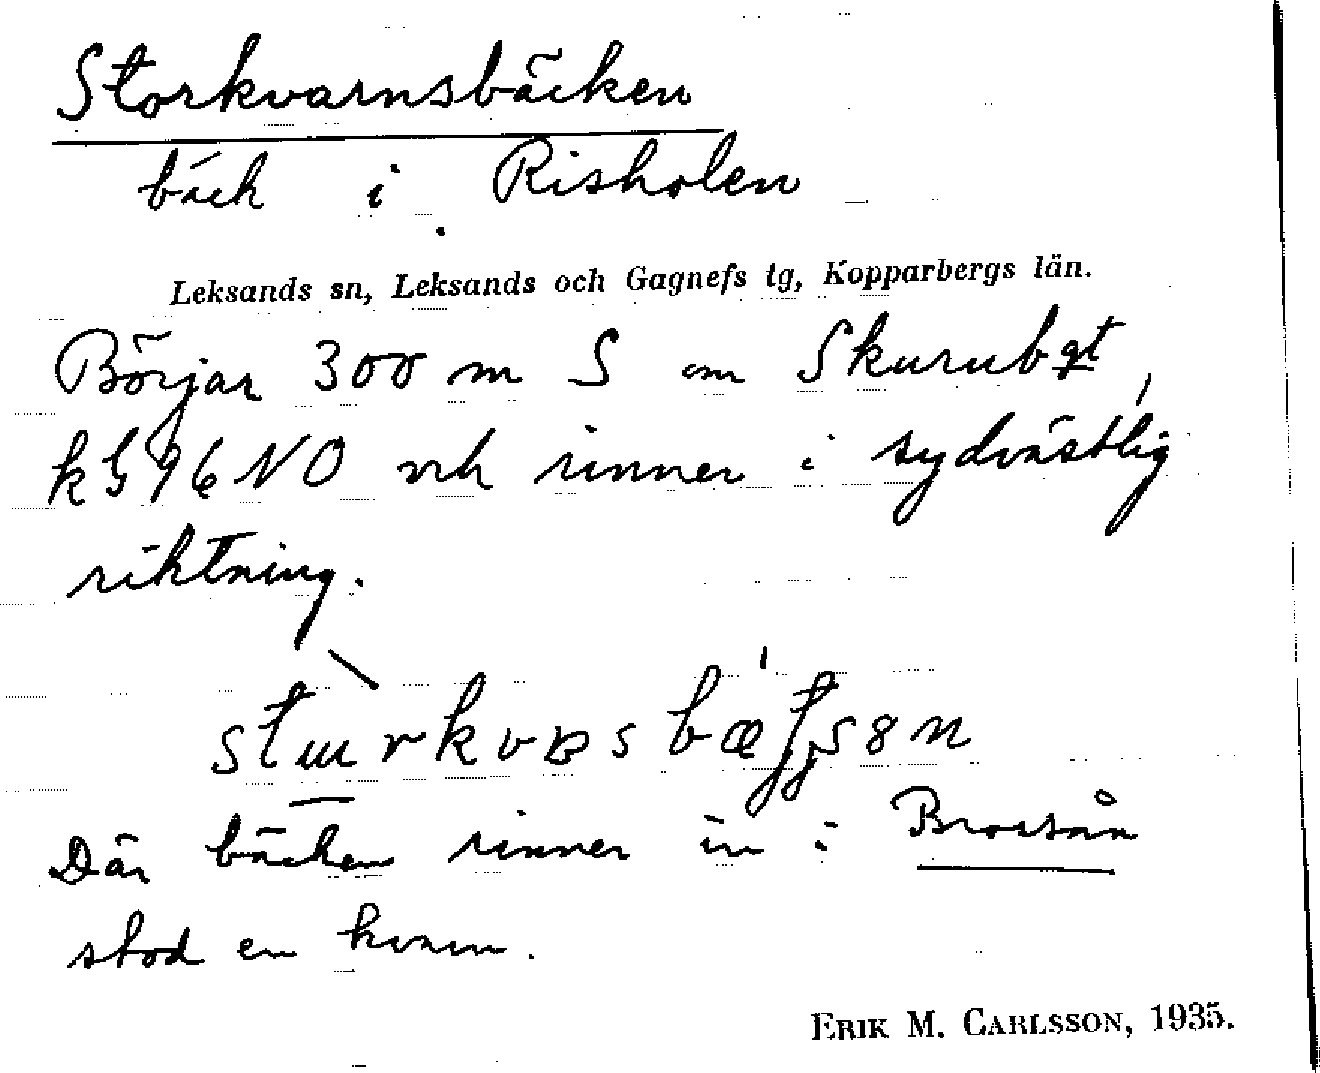 Storkvarnsbäcken
bäck i Risholen
Leksands sn, Leksands och Gagnefs tg, Kopparbergs län.
Börjar 300 m S om Skurubgt,
kb 96 NO och rinner i sydvästlig
riktning.
Där bäcken rinner in i Brossån
stod en kvarn.
ERIK M. CARLSSON, 1935.